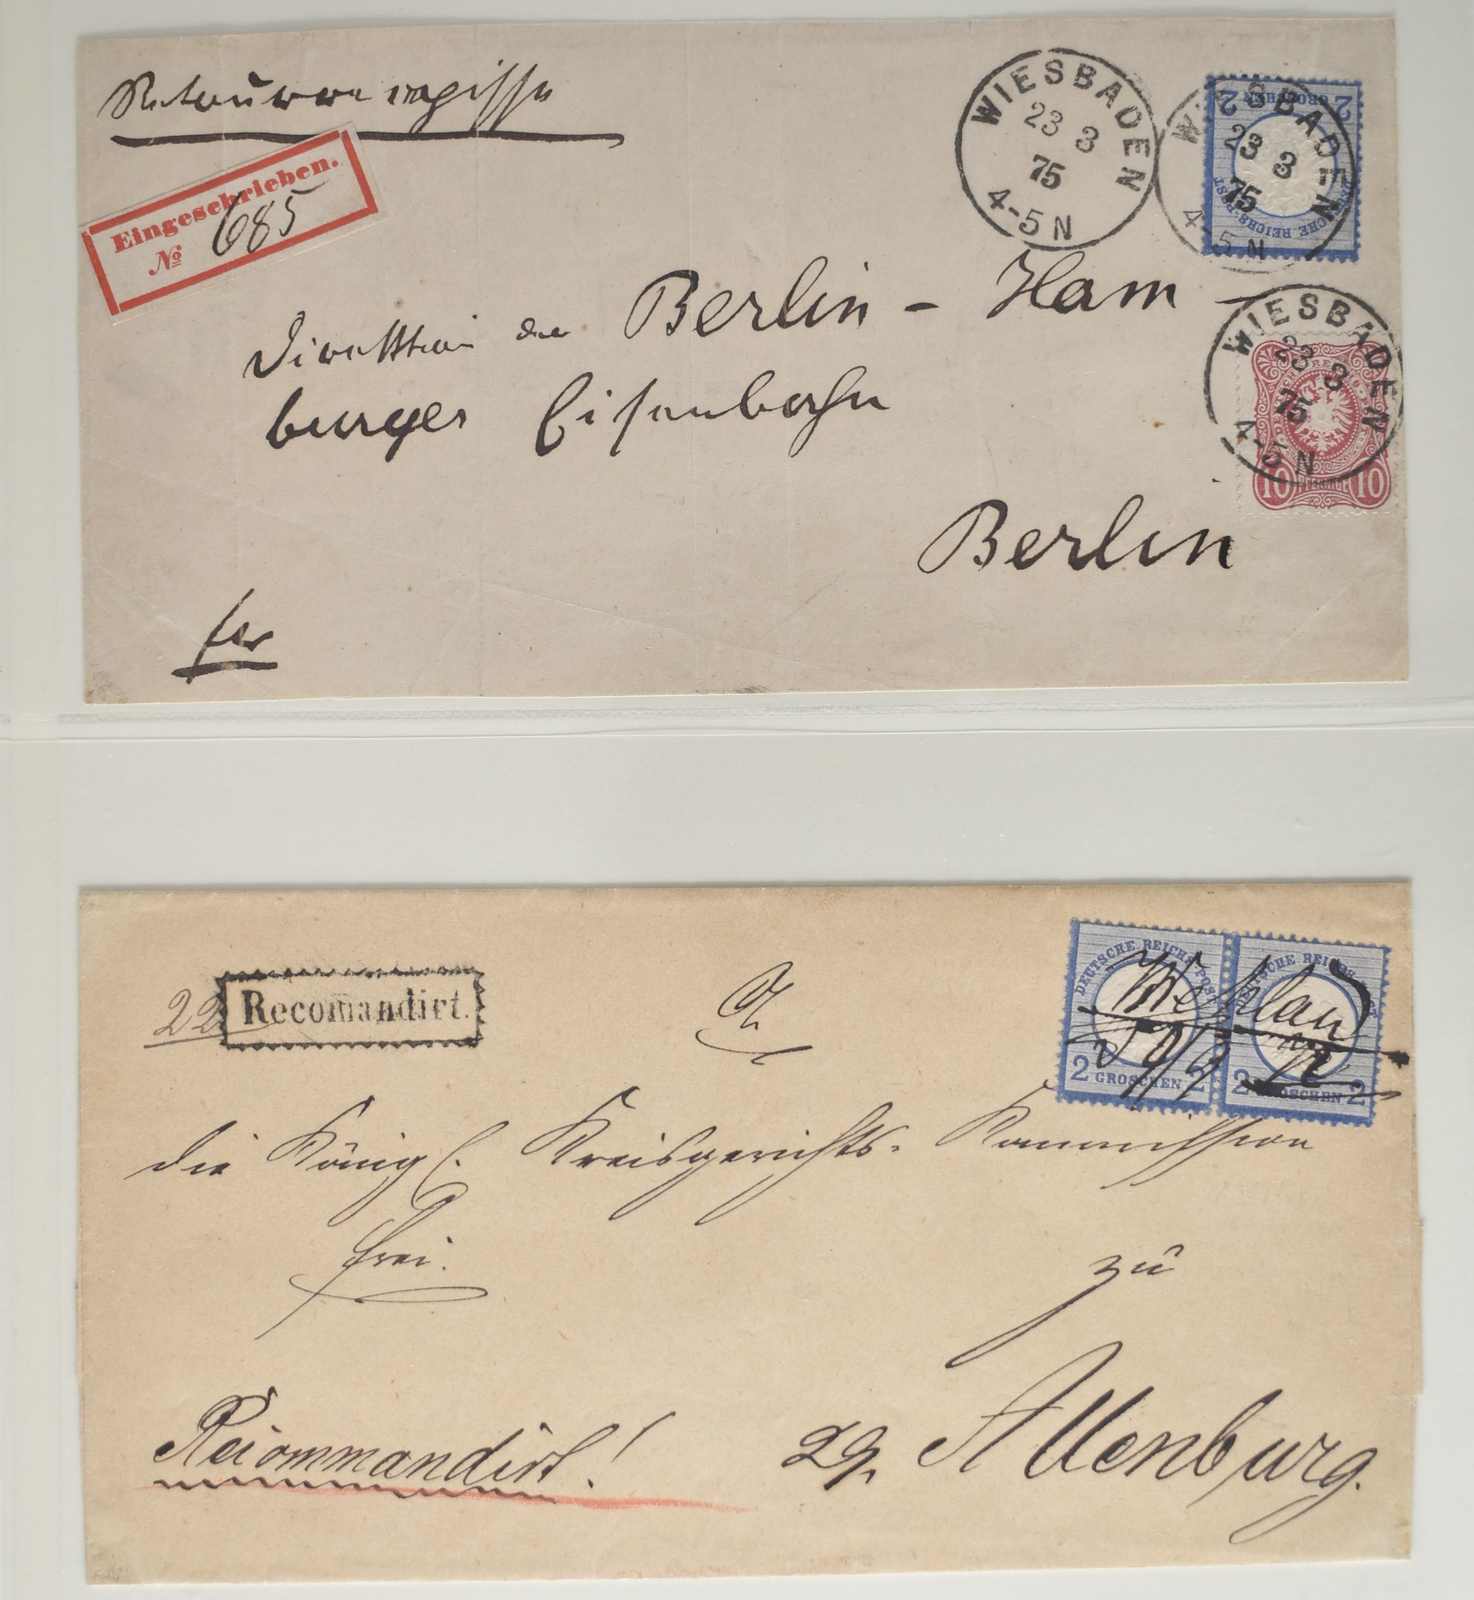 Eingeschrieben.
№ 685
WIESBADEN
23 3
75
4-5N
WIESBADEN
23 3
75
4-5N
2 GROSCHEN 2
DEUTSCHE REICHS-POST
WIESBADEN
23 3
75
4-5N
10 PFENNIGE 10
Direktion der Berlin - Ham
burger Eisenbahn
Berlin
22
Recomandirt.
DEUTSCHE REICHS-POST
2 GROSCHEN 2
DEUTSCHE REICHS-POST
2 GROSCHEN 2
Wehlau
die Königl. Kreisgerichts-Kommission
frei.
zu
Recommandirt!
Allenburg.